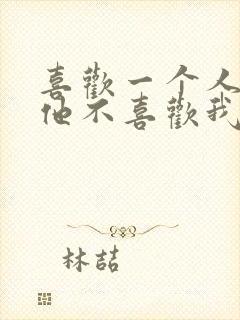 喜歡一个人
他不喜歡我
林喆